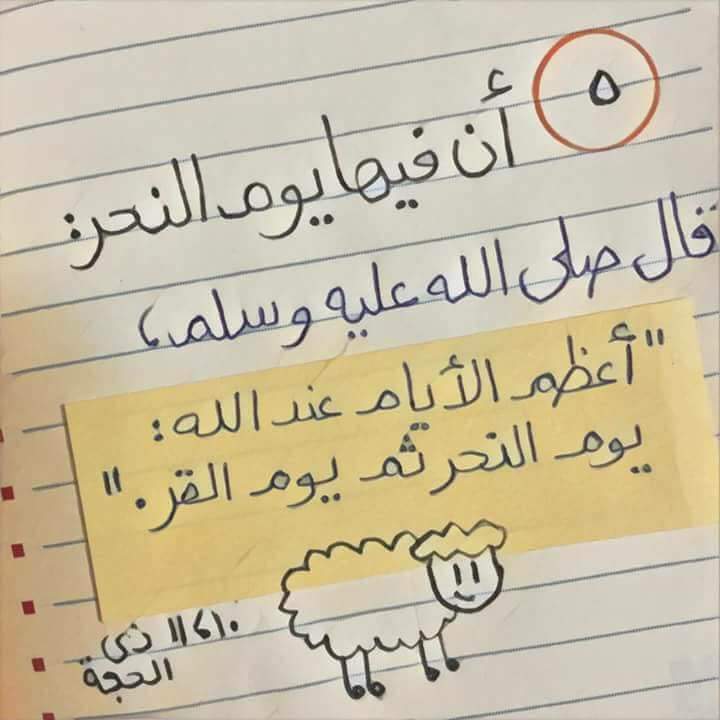 ٥
أن فيها يوم النحر:
قال صلى الله عليه وسلم،
"أعظم الأيام عند الله:
يوم النحر ثم يوم القر."
١٠، ١١ ذي
الحجة